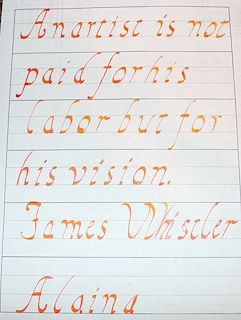 An artist is not
paid for his
labor but for
his vision.
James Whistler
Alaina